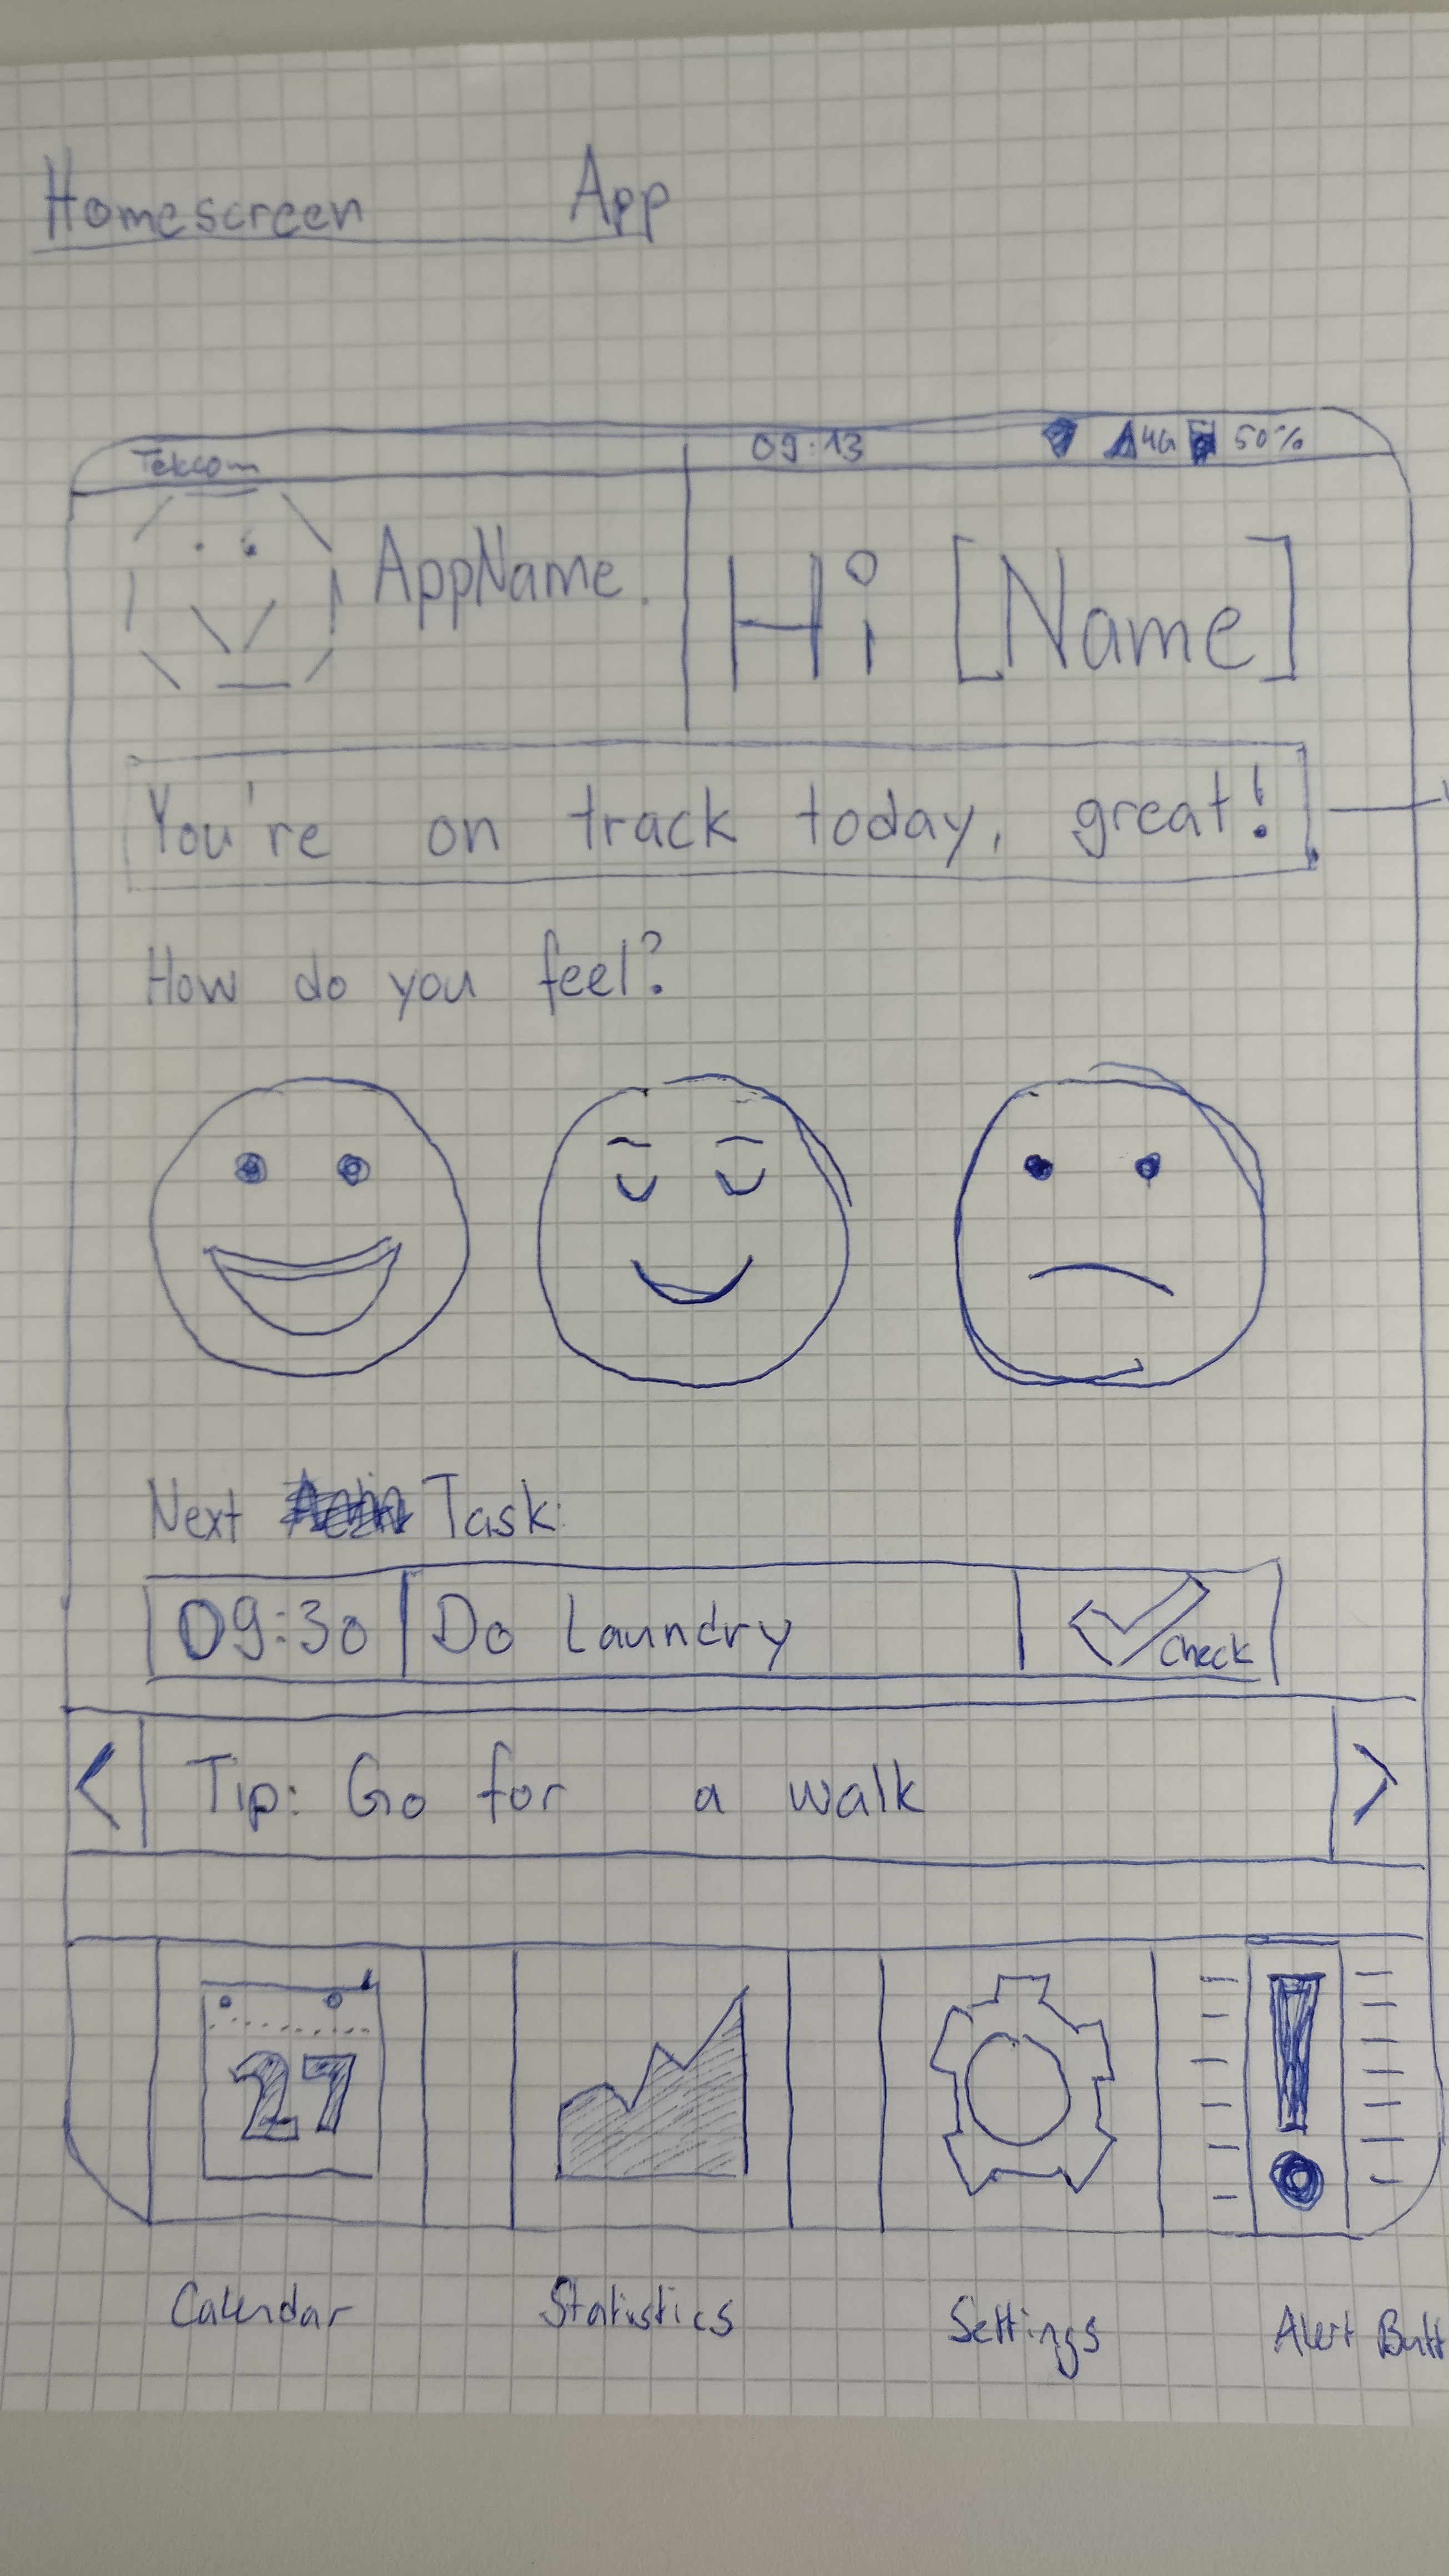 Homescreen App
Telecom 09:13 4G 50%
AppName.
Hi [Name]
You're on track today, great!
How do you feel?
Next Task:
09:30 Do Laundry Check
< Tip: Go for a walk >
27 !
Calendar Statistics Settings Alert Butt